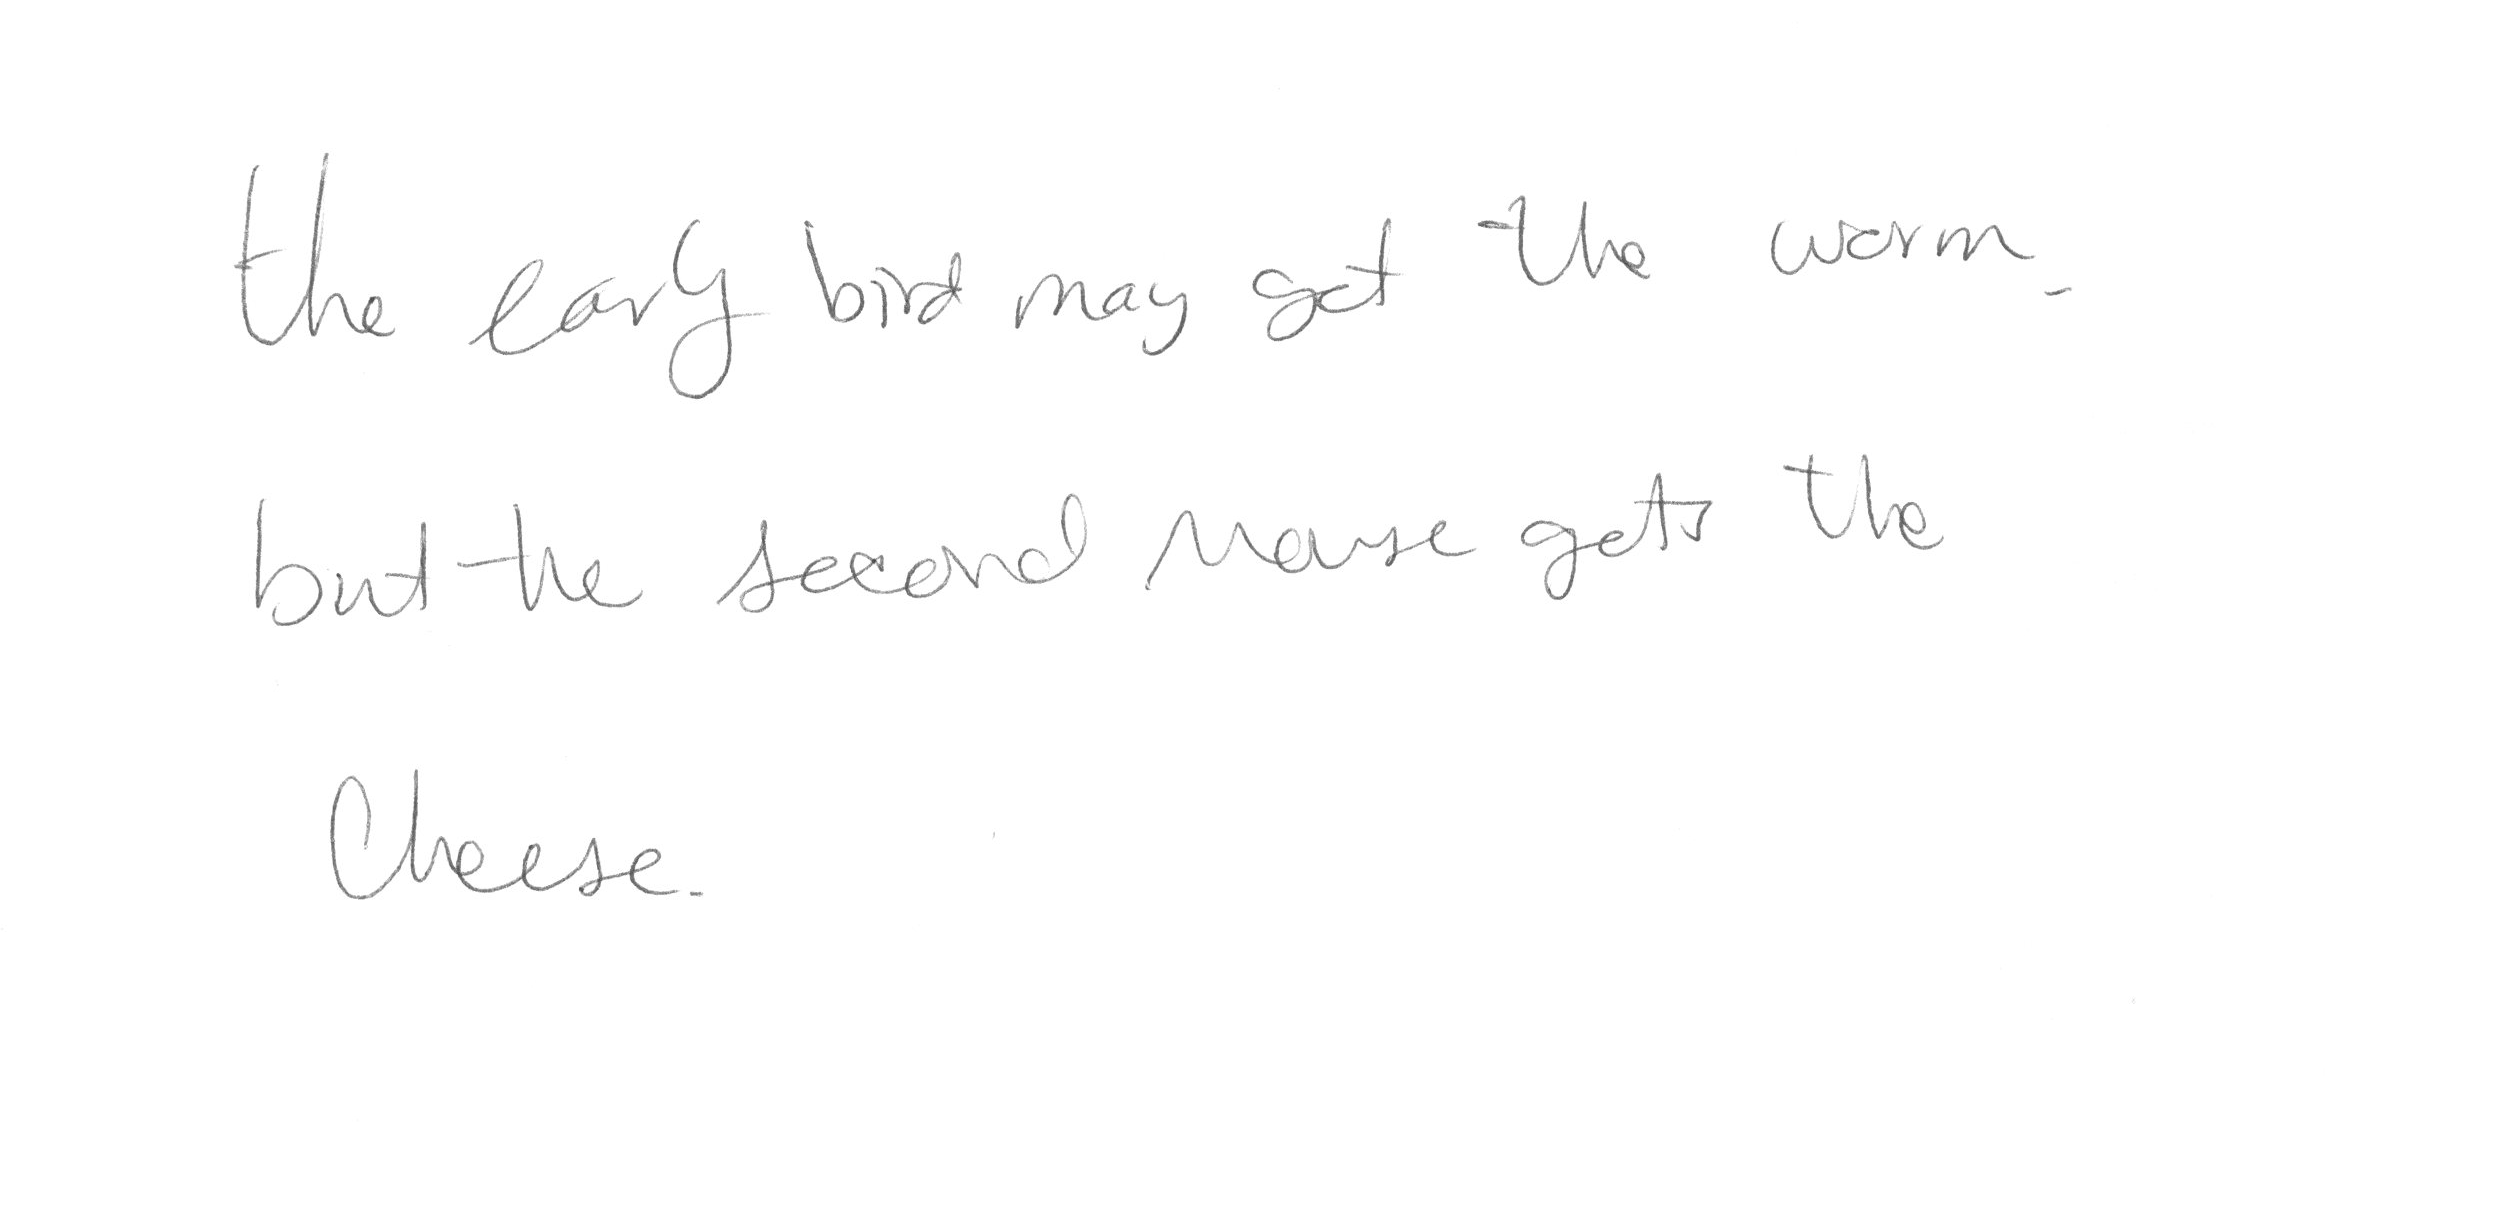 the early bird may get the worm.
but the second mouse gets the
Cheese.